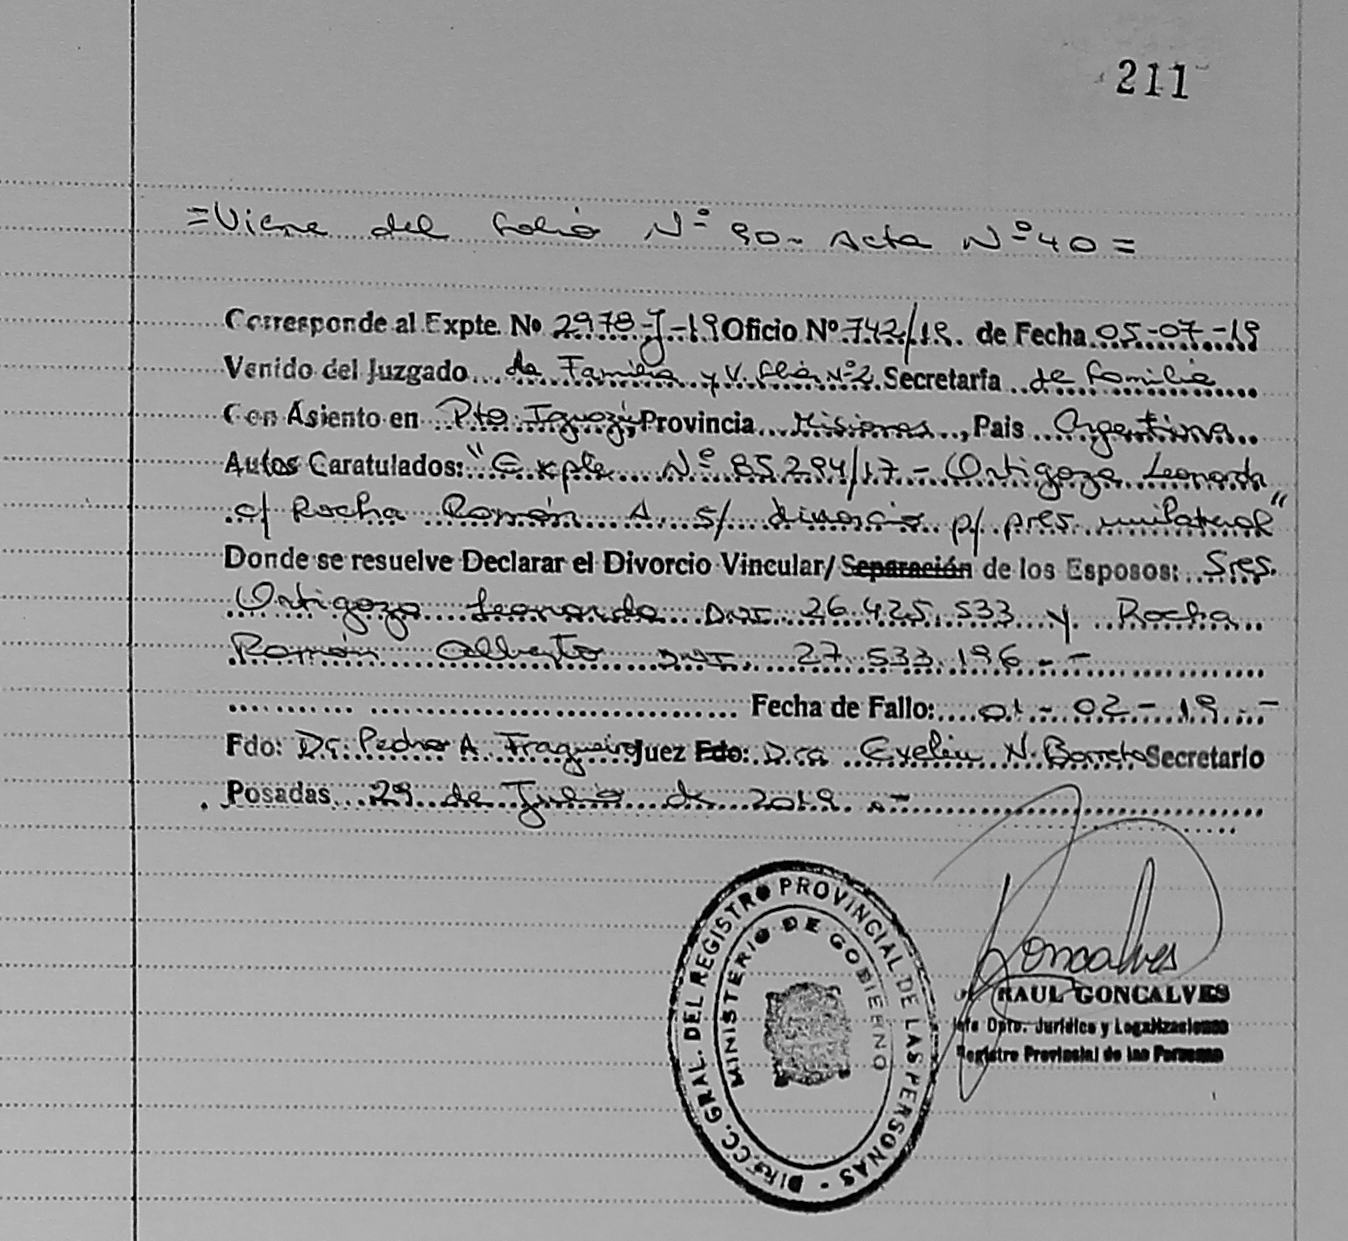 211
=Viene del folio Nº 90- Acta Nº 40=
Corresponde al Expte. Nº 2978-J-19 Oficio Nº 742/19. de Fecha 05-07-19
Venido del Juzgado de Familia y V. flia Nº2. Secretaría de familia
Con Asiento en Pto Iguazú, Provincia Misiones, País Argentina
Autos Caratulados: "Expte Nº 85.294/17 - Ortigoza Leonarda
c/ Rocha Román A. s/ divorcio p/ pres. unilateral"
Donde se resuelve Declarar el Divorcio Vincular/ Separación de los Esposos: Sres.
Ortigoza Leonarda DNI 26.425.533 y Rocha
Román Alberto DNI. 27.533.196.-
Fecha de Fallo: 01-02-19.-
Fdo: Dr. Pedro A. Fragueiro Juez Fdo: Dra Evelin N. Barreto Secretario
Posadas 29 de Julio de 2019.-
DIRECC. GRAL. DEL REGISTRO PROVINCIAL DE LAS PERSONAS -
MINISTERIO DE GOBIERNO
Goncalves
RAUL GONCALVES
Jefe Dpto. Jurídico y Legalizaciones
Registro Provincial de las Personas